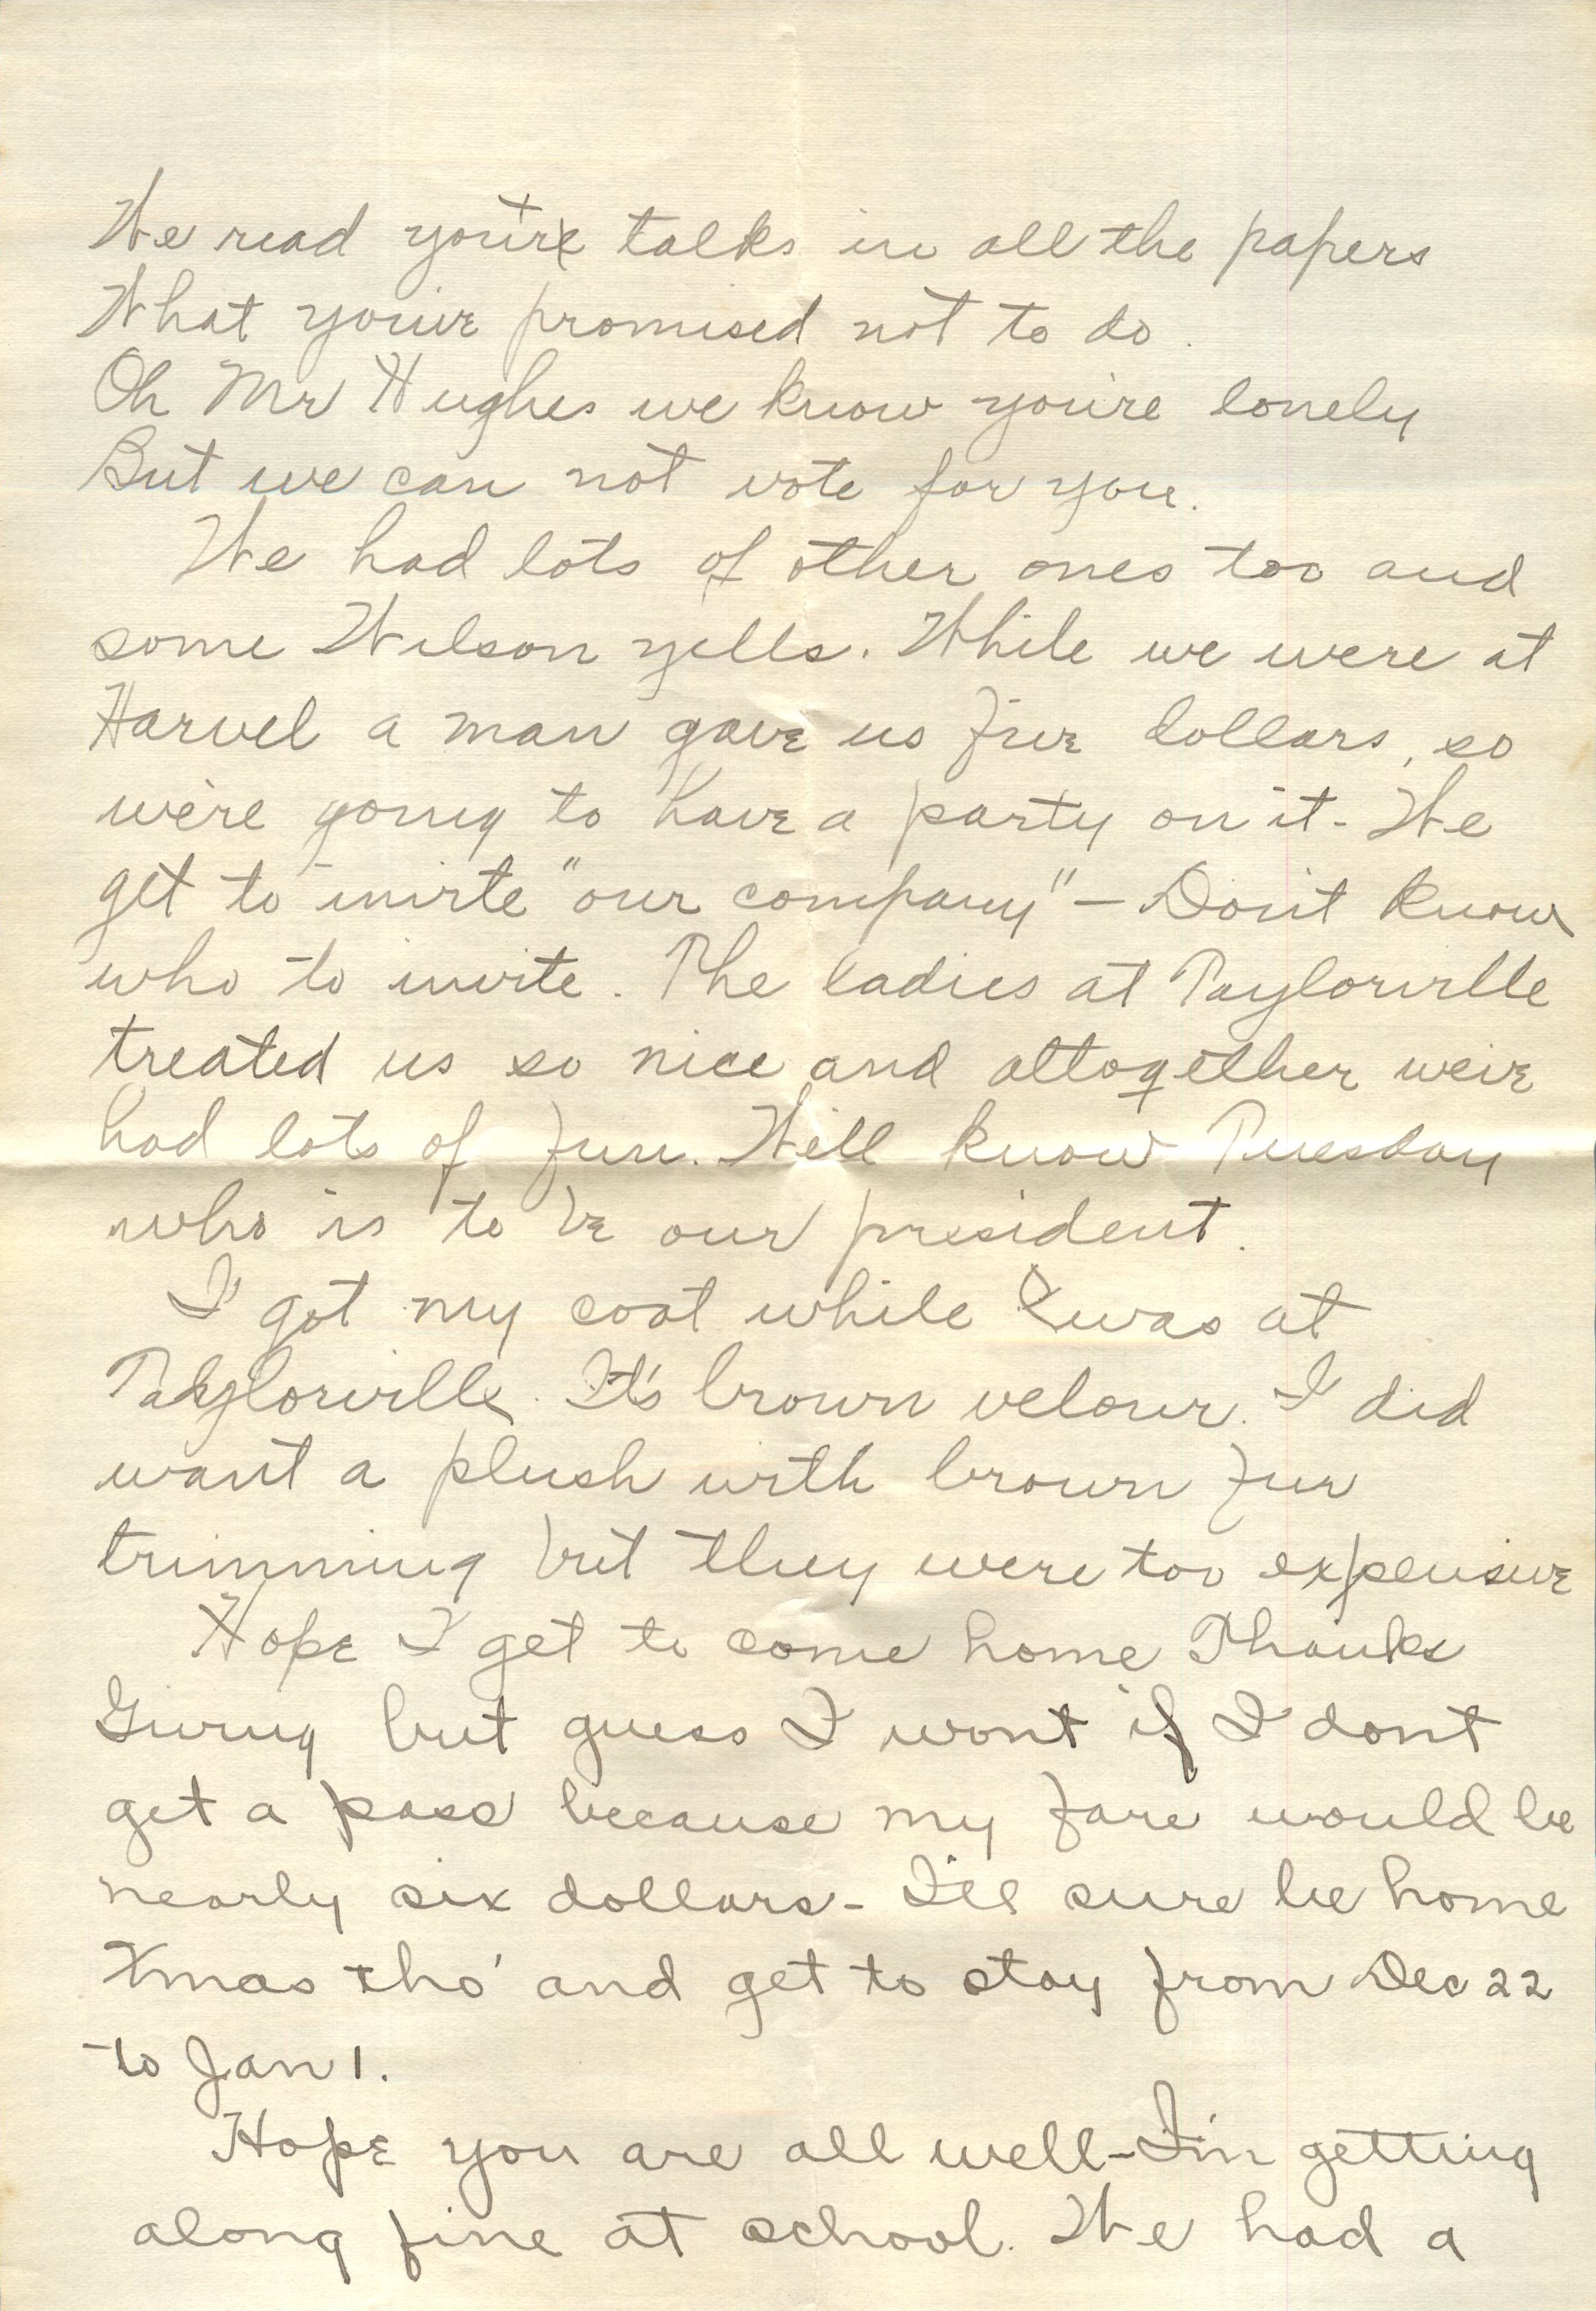 We read you're talks in all the papers
What you've promised not to do.
Oh Mr Hughes we know you're lonely
But we can not vote for you.
We had lots of other ones too and
some Wilson yells. While we were at
Harvel a man gave us five dollars, so
we're going to have a party on it - We
get to invite "our company" - Don't know
who to invite. The ladies at Taylorville
treated us so nice and altogether we've
had lots of fun. Will know Tuesday
who is to be our president.
I got my coat while I was at
Taylorville. It's brown velour. I did
want a plush with brown fur
trimming but they were too expensive
Hope I get to come home Thanks
Giving but guess I wont if I dont
get a pass because my fare would be
nearly six dollars - I'll sure be home
Xmas tho' and get to stay from Dec 22
to Jan 1.
Hope you are all well - I'm getting
along fine at school. We had a